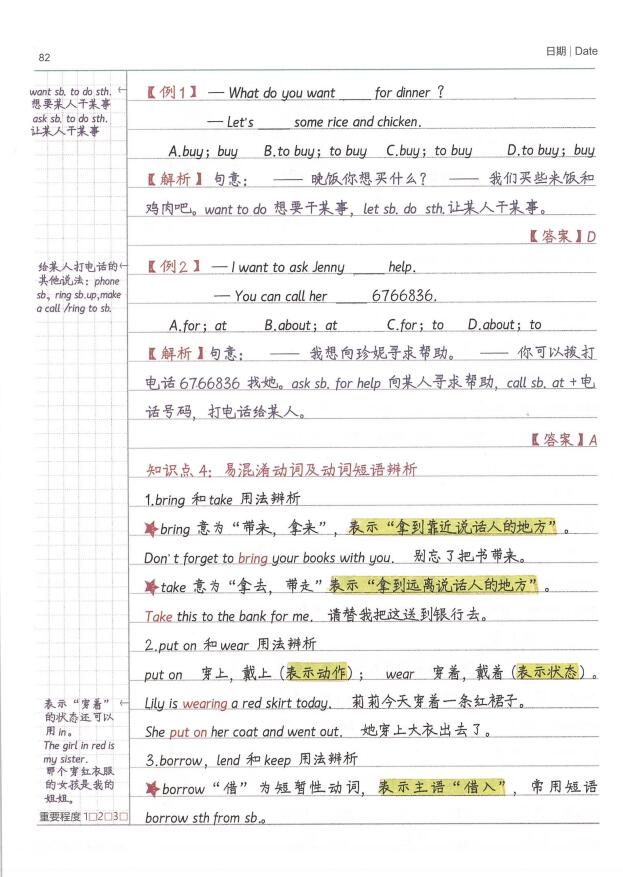 82
日期 | Date
want sb. to do sth.
想要某人干某事
ask sb. to do sth.
让某人干某事
【例1】 — What do you want ____ for dinner ?
— Let's ____ some rice and chicken.
A.buy；buy B.to buy；to buy C.buy；to buy D.to buy；buy
【解析】句意： —— 晚饭你想买什么？ —— 我们买些米饭和
鸡肉吧。want to do 想要干某事，let sb. do sth.让某人干某事。
【答案】D
给某人打电话的
其他说法：phone
sb., ring sb.up,make
a call /ring to sb.
【例2】 — I want to ask Jenny ____ help.
— You can call her ____ 6766836.
A.for；at B.about；at C.for；to D.about；to
【解析】句意： —— 我想向珍妮寻求帮助。 —— 你可以拨打
电话6766836 找她。ask sb. for help 向某人寻求帮助，call sb. at +电
话号码，打电话给某人。
【答案】A
知识点 4：易混淆动词及动词短语辨析
1.bring 和 take 用法辨析
★bring 意为“带来，拿来”，表示“拿到靠近说话人的地方”。
Don't forget to bring your books with you. 别忘了把书带来。
★take 意为“拿去，带走”表示“拿到远离说话人的地方”。
Take this to the bank for me. 请替我把这送到银行去。
2.put on 和 wear 用法辨析
put on 穿上，戴上（表示动作）； wear 穿着，戴着（表示状态）。
Lily is wearing a red skirt today. 莉莉今天穿着一条红裙子。
She put on her coat and went out. 她穿上大衣出去了。
表示“穿着”
的状态还可以
用 in。
The girl in red is
my sister.
那个穿红衣服
的女孩是我的
姐姐。
3.borrow，lend 和 keep 用法辨析
★borrow “借”为短暂性动词，表示主语“借入”，常用短语
borrow sth from sb.。
重要程度 1□2□3□